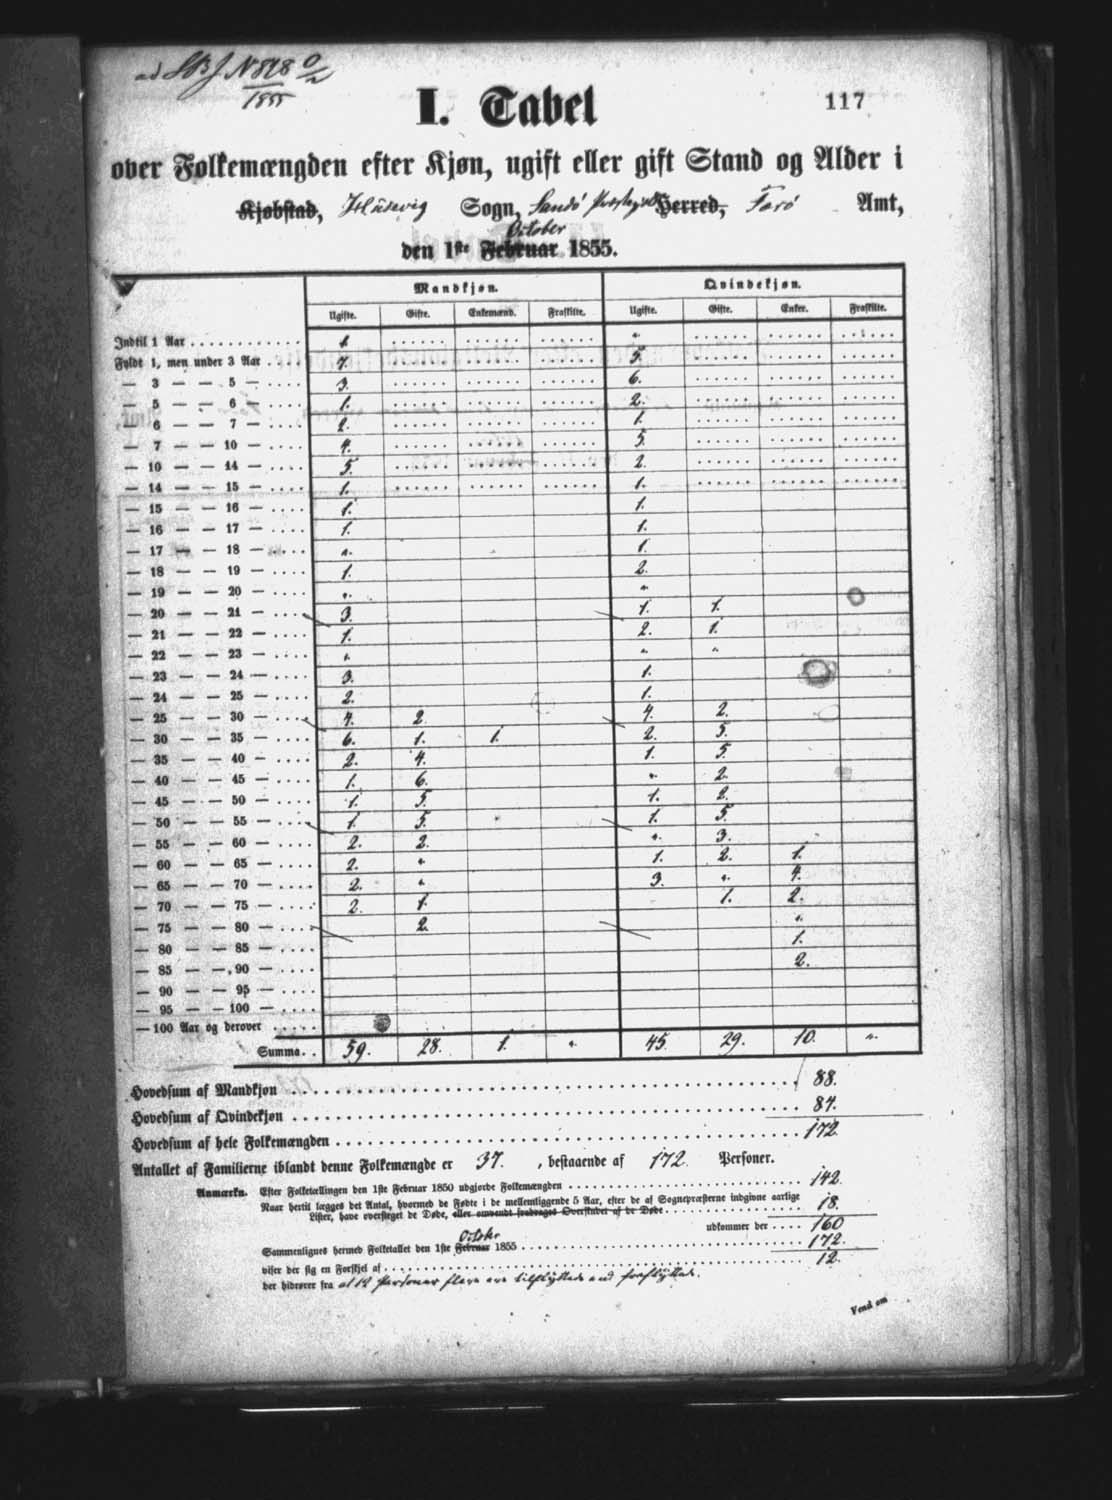 ad N 818
1855
117
I. Tabel
over Folkemængden efter Kjøn, ugift eller gift Stand og Alder i
Kjøbstad, Husevig Sogn, Sandö Herred, Farö Amt,
October
den 1ste Februar 1855.
Mandkjøn. Qvindekjøn.
Ugifte. Gifte. Enkemænd. Fraskilte. Ugifte. Gifte. Enker. Fraskilte.
Indtil 1 Aar 1. "
Fyldt 1, men under 3 Aar 7. 5.
— 3 — — 5 — 3. 6.
— 5 — — 6 — 1. 2.
— 6 — — 7 — 2. 1.
— 7 — — 10 — 4. 5.
— 10 — — 14 — 5. 2.
— 14 — — 15 — 1. 1.
— 15 — — 16 — 1. 1.
— 16 — — 17 — 1. 1.
— 17 — — 18 — ". 1.
— 18 — — 19 — 1. 2.
— 19 — — 20 — ". "
— 20 — — 21 — 3. 1. 1.
— 21 — — 22 — 1. 2. 1.
— 22 — — 23 — ". " "
— 23 — — 24 — 3. 1.
— 24 — — 25 — 2. 1.
— 25 — — 30 — 4. 2. 4. 2.
— 30 — — 35 — 6. 1. 1. 2. 5.
— 35 — — 40 — 2. 4. 1. 5.
— 40 — — 45 — 1. 6. ". 2.
— 45 — — 50 — 1. 5. 1. 2.
— 50 — — 55 — 1. 5. 1. 5.
— 55 — — 60 — 2. 2. ". 3.
— 60 — — 65 — 2. " 1. 2. 1.
— 65 — — 70 — 2. " 3. ". 4.
— 70 — — 75 — 2. 1. 1. 2.
— 75 — — 80 — 2. ".
— 80 — — 85 — 1.
— 85 — — 90 — 2.
— 90 — — 95 —
— 95 — — 100 —
— 100 Aar og derover
Summa. 59. 28. 1. ". 45. 29. 10. ".
Hovedsum af Mandkjøn 88.
Hovedsum af Qvindekjøn 84.
Hovedsum af hele Folkemængden 172.
Antallet af Familierne iblandt denne Folkemængde er 37. , bestaaende af 172. Personer.
Anmærkn. Efter Folketællingen den 1ste Februar 1850 udgjorde Folkemængden 142.
Naar hertil lægges det Antal, hvormed de Fødte i de mellemliggende 5 Aar, efter de af Sognepræsterne indgivne aarlige
Lister, have oversteget de Døde, eller omvendt fradrages Overskudet af de Døde 18.
udkommer der 160
October
Sammenlignes hermed Folketallet den 1ste Februar 1855 172.
viser der sig en Forskjel af 12.
der hidrører fra at 12 Personer flere ere tilflyttede end fraflyttede.
Vend om